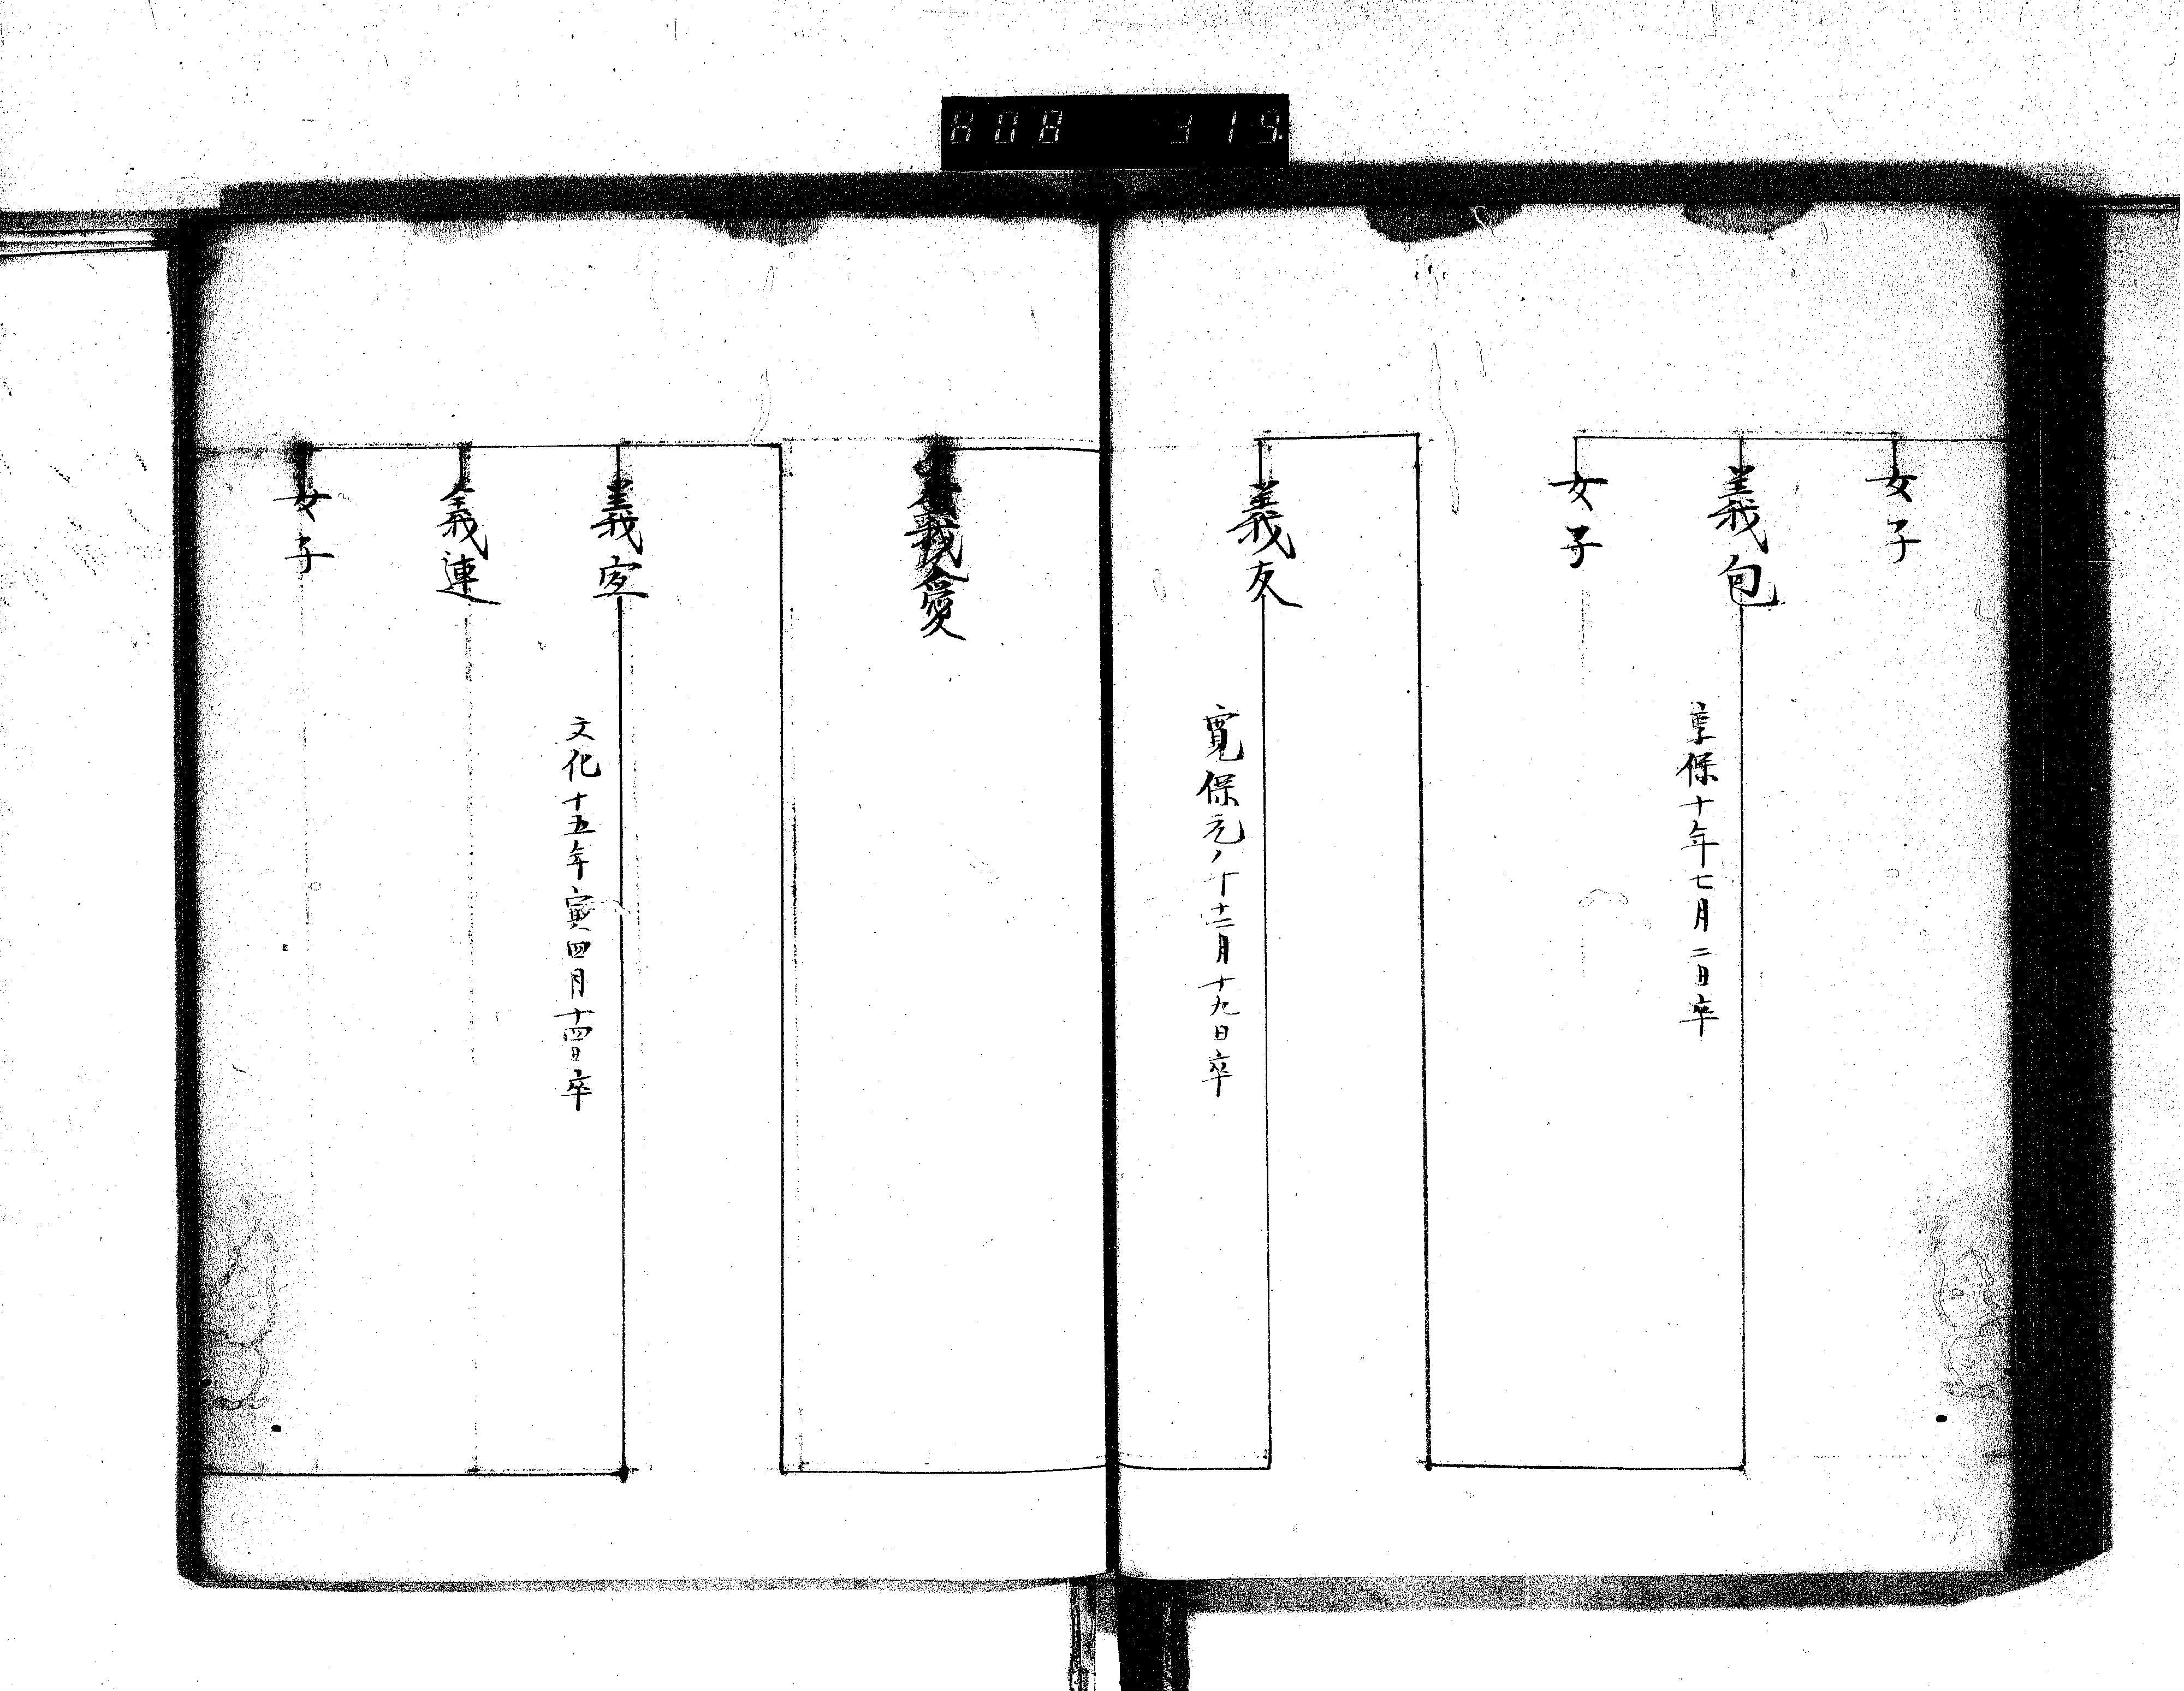 808 319.
女子
義包
享保十年七月二日卒
女子
義友
寛保元
十二月十九日卒
義愛
義寔
文化十五年寅四月十四日卒
義連
女子